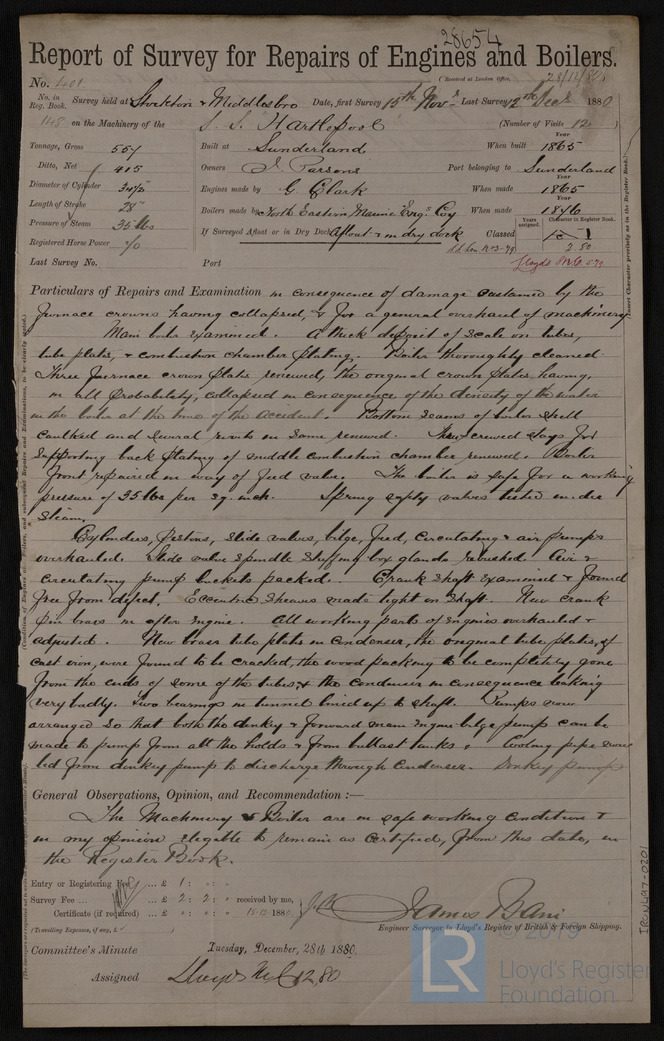 28654
Report of Survey for Repairs of Engines and Boilers.
No. 401 (Received at London Office, 28/12/80)
No. in Reg. Book. Survey held at Stockton & Middlesbro Date, first Survey 15th Novr Last Survey 12th Decr 1880
148 on the Machinery of the S.S. "Hartlepool" (Number of Visits 12)
Tonnage, Gross 557 Built at Sunderland When built Year 1865
Ditto, Net 415 Owners J. Parsons Port belonging to Sunderland
Diameter of Cylinder Engines made by G. Clark When made Year 1865
Length of Stroke 28" Boilers made by North Eastern Marine Engg Coy When made Year 1876
Pressure of Steam 35 lbs If Surveyed Afloat or in Dry Dock Afloat & in dry dock Classed Years assigned. Character in Register Book.
Registered Horse Power 70
Last Survey No. Port
(Insert Character precisely as in the Register Book.)
Particulars of Repairs and Examination in consequence of damage sustained by the
furnace crowns having collapsed, & for a general overhaul of machinery
Main boiler examined. A thick deposit of scale on tubes,
tube plates, & combustion chamber plating. Boiler thoroughly cleaned.
Three furnace crown plates renewed, the original crown plates having,
in all probability, collapsed in consequence of the density of the water
in the boiler at the time of the accident. Bottom seams of boiler shell
caulked and several rivets in same renewed. screwed stays for
supporting back plating of middle combustion chamber renewed. Boiler
front repaired in way of feed valve. The boiler is safe for a working
pressure of 35 lbs per sq. inch. Spring safety valves tested under
steam.
Cylinders, pistons, slide valves, bilge, feed, circulating & air pumps
overhauled. Slide valve spindle stuffing box glands rebushed. Air &
circulating pump buckets packed. Crank shaft examined & found
free from defect. Eccentric sheaves made tight on shaft. New crank
pin brass in after engine. All working parts of engines overhauled &
adjusted. New brass tube plates in condenser, the original tube plates, of
cast iron, were found to be cracked, the wood packing to be completely gone
from the ends of some of the tubes, & the condenser in consequence leaking
very badly. Two bearings in tunnel lined up to shaft. Pumps now
arranged so that both the donkey & forward main engine bilge pump can be
made to pump from all the holds & from ballast tanks. Cooling pipe now
led from donkey pump to discharge through condenser. Donkey pump
General Observations, Opinion, and Recommendation :—
The Machinery & Boiler are in safe working condition &
in my opinion elegable to remain as certified, from this date, in
the Register Book.
Entry or Registering Fee ... £ 1 : " : "
Survey Fee ... £ 2 : 2 : " received by me,
Certificate (if required) ... £ " : " : " 15.12.1880
(Travelling Expenses, if any, £ )
James Bain
Engineer Surveyor to Lloyd's Register of British & Foreign Shipping.
Committee's Minute Tuesday, December, 28th 1880.
Assigned Lloyd's M.C. 12,80
IRON497-0201
© 2019
LR Lloyd's Register
Foundation